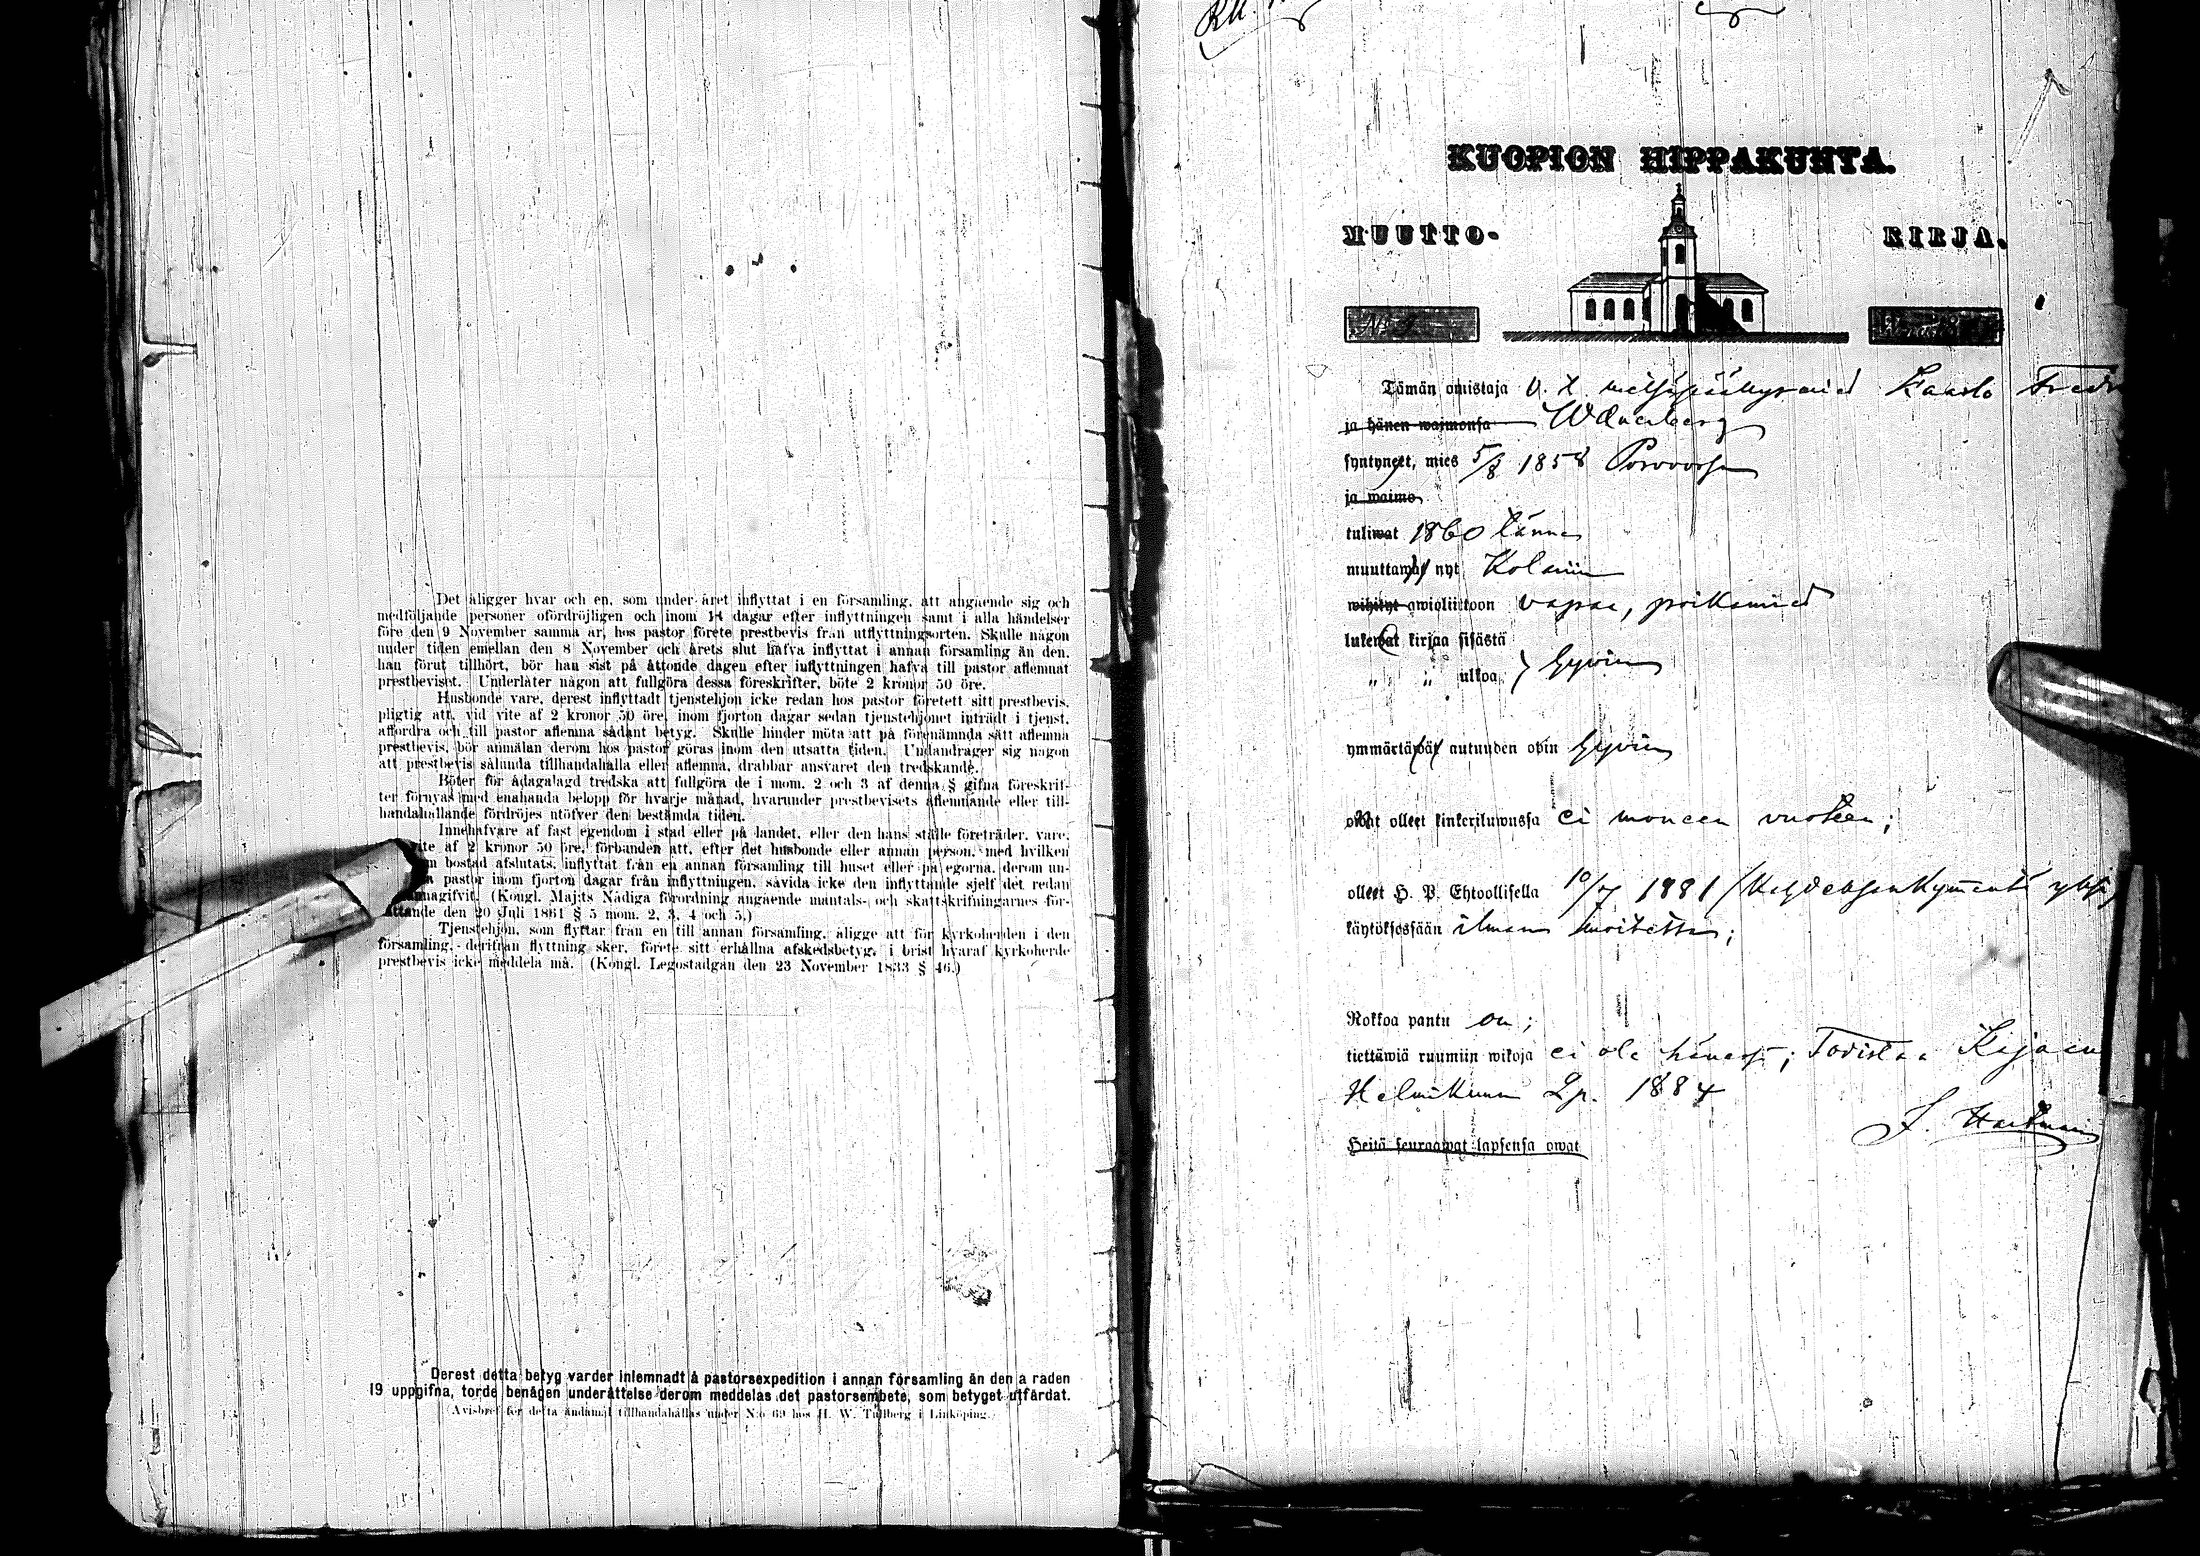 Det åligger hvar och en, som under året inflyttat i en församling, att angående sig och
medföljande personer ofördröjligen och inom 14 dagar efter inflyttningen samt i alla händelser
före den 9 November samma år, hos pastor förete prestbevis från utflyttningsorten. Skulle någon
under tiden emellan den 8 November och årets slut hafva inflyttat i annan församling än den,
han förut tillhört, bör han sist på åttonde dagen efter inflyttningen hafva till pastor aflemnat
prestbeviset. Underlåter någon att fullgöra dessa föreskrifter, böte 2 kronor 50 öre.
Husbonde vare, derest inflyttadt tjenstehjon icke redan hos pastor företett sitt prestbevis,
pligtig att, vid vite af 2 kronor 50 öre, inom fjorton dagar sedan tjenstehjonet inträdt i tjenst,
affordra och till pastor aflemna sådant betyg. Skulle hinder möta att på förenämnda sätt aflemna
prestbevis, bör anmälan derom hos pastor göras inom den utsatta tiden. Undandrager sig någon
att prestbevis sålunda tillhandahålla eller aflemna, drabbar ansvaret den tredskande.
Böter för ådagalagd tredska att fullgöra de i mom. 2 och 3 af denna § gifna föreskrif-
ter förnyas med enahanda belopp för hvarje månad, hvarunder prestbevisets aflemnande eller till-
handahållande fördröjes utöfver den bestämda tiden.
Innehafvare af fast egendom i stad eller på landet, eller den hans ställe företräder, vare,
vite af 2 kronor 50 öre, förbunden att, efter det husbonde eller annan person, med hvilken
bostad afslutats, inflyttat från en annan församling till huset eller på egorna, derom un-
pastor inom fjorton dagar från inflyttningen, såvida icke den inflyttande sjelf det redan
(Kongl. Maj:ts Nådiga förordning angående mantals- och skattskrifningarnes för-
rättande den 20 Juli 1861 § 5 mom. 2, 3, 4 och 5.)
Tjenstehjon, som flyttar från en till annan församling, åligge att för kyrkoherden i den
församling, derifrån flyttning sker, förete sitt erhållna afskedsbetyg, i brist hvaraf kyrkoherde
prestbevis icke meddela må. (Kongl. Legostadgan den 23 November 1833 § 46.)
Derest detta betyg varder inlemnadt å pastorsexpedition i annan församling än den å raden
19 uppgifna, torde benägen underättelse derom meddelas det pastorsembete, som betyget utfärdat.
Avisbref för detta ändamål tillhandahållas under N:o 69 hos H. W. Tullberg i Linköping.
KUOPION HIPPAKUNTA.
MUUTTO- KIRJA.
Tämän omistaja v. t. metsäpäällysmies Kaarlo Fredr
ja hänen waimonsa
syntyneet, mies 5/8 1858 Porvoossa
ja waimo
tuliwat 1860 tänne
muuttawat nyt Kolmiin
wihityt awioliittoon vapaa, poikamies
lukewat kirjaa sisästä
" " ulkoa } hyvin
ymmärtäwät autuuden opin hyvin
owat olleet kinkeriluwussa ei moneen vuoteen;
olleet H. P. Ehtoollisella 10/7 1881 (Kahdeksankymmentä yksi)
käytöksessään ilman moitetta;
Rokkoa pantu on;
tiettäwiä ruumiin wikoja ei ole hänessä; Todistaa Kajaan
Helmikuun 2 p. 1884
J. Hartman
Heitä seuraawat lapsensa owat